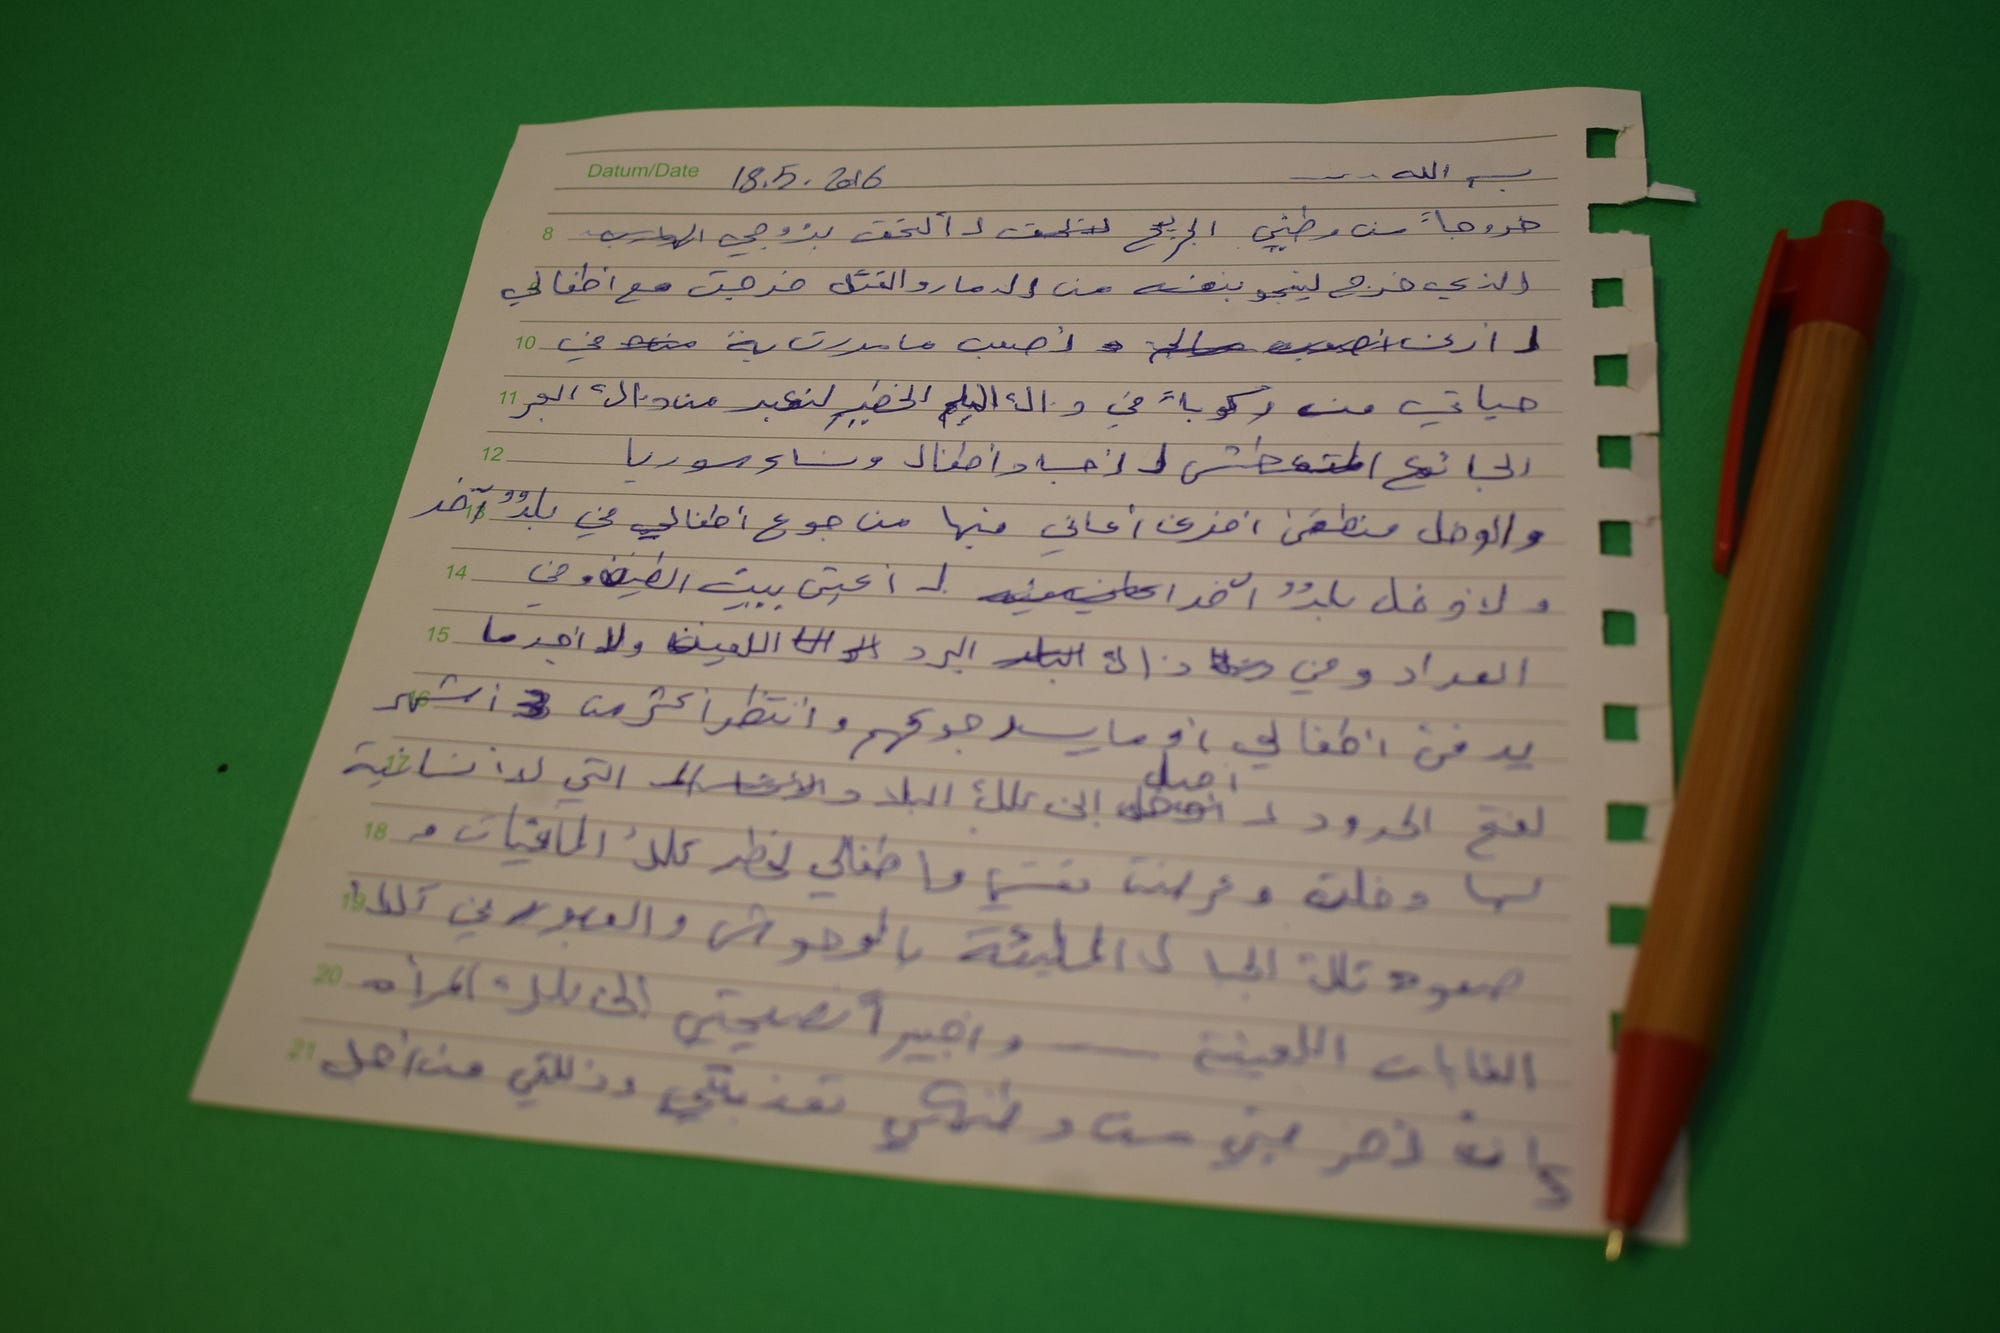 Datum/Date 18.5.2016 بسم الله
8 خروجاً من وطني الجريح لألتحق بزوجي
الذي خرج لينجو بنفسه من الدمار والقتل خرجت مع اطفالي
10 لـ أرى أصعب ما مررت به في
11 حياتي من ركوباً في ذالك البلم الخطير لنعبر من ذالك البحر
12 الجائع المتعطش لـ أجساد أطفال ونساء سوريا
13 والوصل منطقى اخرى أعاني فيها من جوع أطفالي في بلدٍ آخر
14 ولأوصل بلدٍ آخر لـ أعيش ببيت الطين وفي
15 العراء وفي ذالك البرد اللعين ولا أجد ما
16 يدفئ اطفالي أو ما يسد جوعهم وانتظر أكثر من 3 أشهر
17 لفتح الحدود لـ أصل إلى تلك البلاد التي لا انسانية
18 لها دخلت وعرضت نفسي واطفالي لخطر تلك المافيات و
19 صعود تلك الجبال المليئة بالوحوش والعبور في تلك
20 الغابات اللعينة واخيراً نصيحتي إلى تلك المرأه
21 من وطنكي تعذبتي وذللتي من أجل